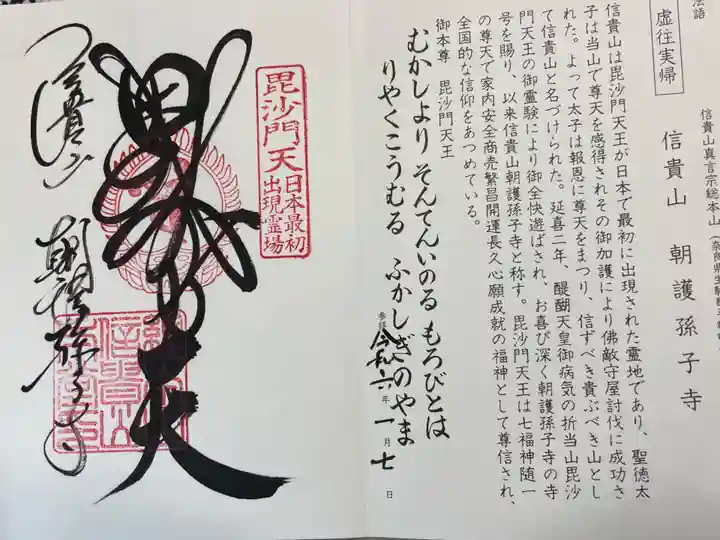 法語
虚往実帰
信貴山真言宗総本山
信貴山 朝護孫子寺
信貴山は毘沙門天王が日本で最初に出現された霊地であり、聖徳太
子は当山で尊天を感得されその御加護により佛敵守屋討伐に成功さ
れた。よって太子は報恩に尊天をまつり、信ずべき貴ぶべき山とし
て信貴山と名づけられた。延喜二年、醍醐天皇御病気の折当山毘沙
門天王の御霊験により御全快遊ばされ、お喜び深く朝護孫子寺の寺
号を賜り、以来信貴山朝護孫子寺と称す。毘沙門天王は七福神随一
の尊天で家内安全商売繁昌開運長久心願成就の福神として尊信され、
全国的な信仰をあつめている。
御本尊 毘沙門天王
むかしより そんてんいのる もろびとは
りやくこうむる ふかしぎのやま
参拝 令和六年一月七日
毘沙門天
日本最初
出現霊場
信貴山
朝護孫子寺